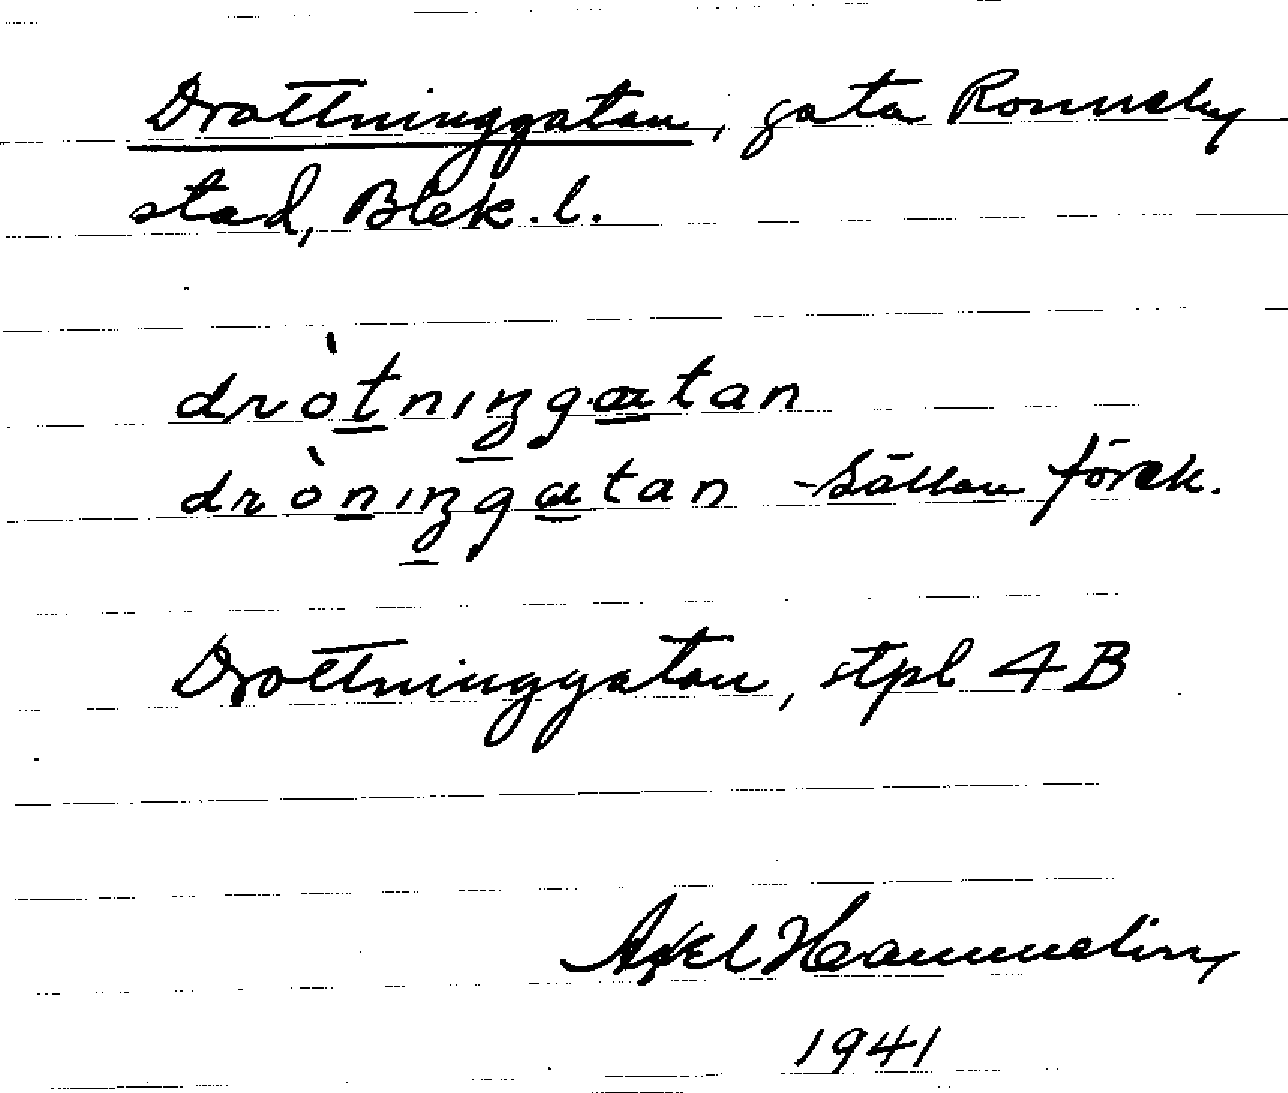 Drottninggatan, gata Ronneby
stad, Blek. l.
dròtniŋgatan
dròniŋgatan - sällan förek.
Drottninggatan, stpl 4B
Axel
1941